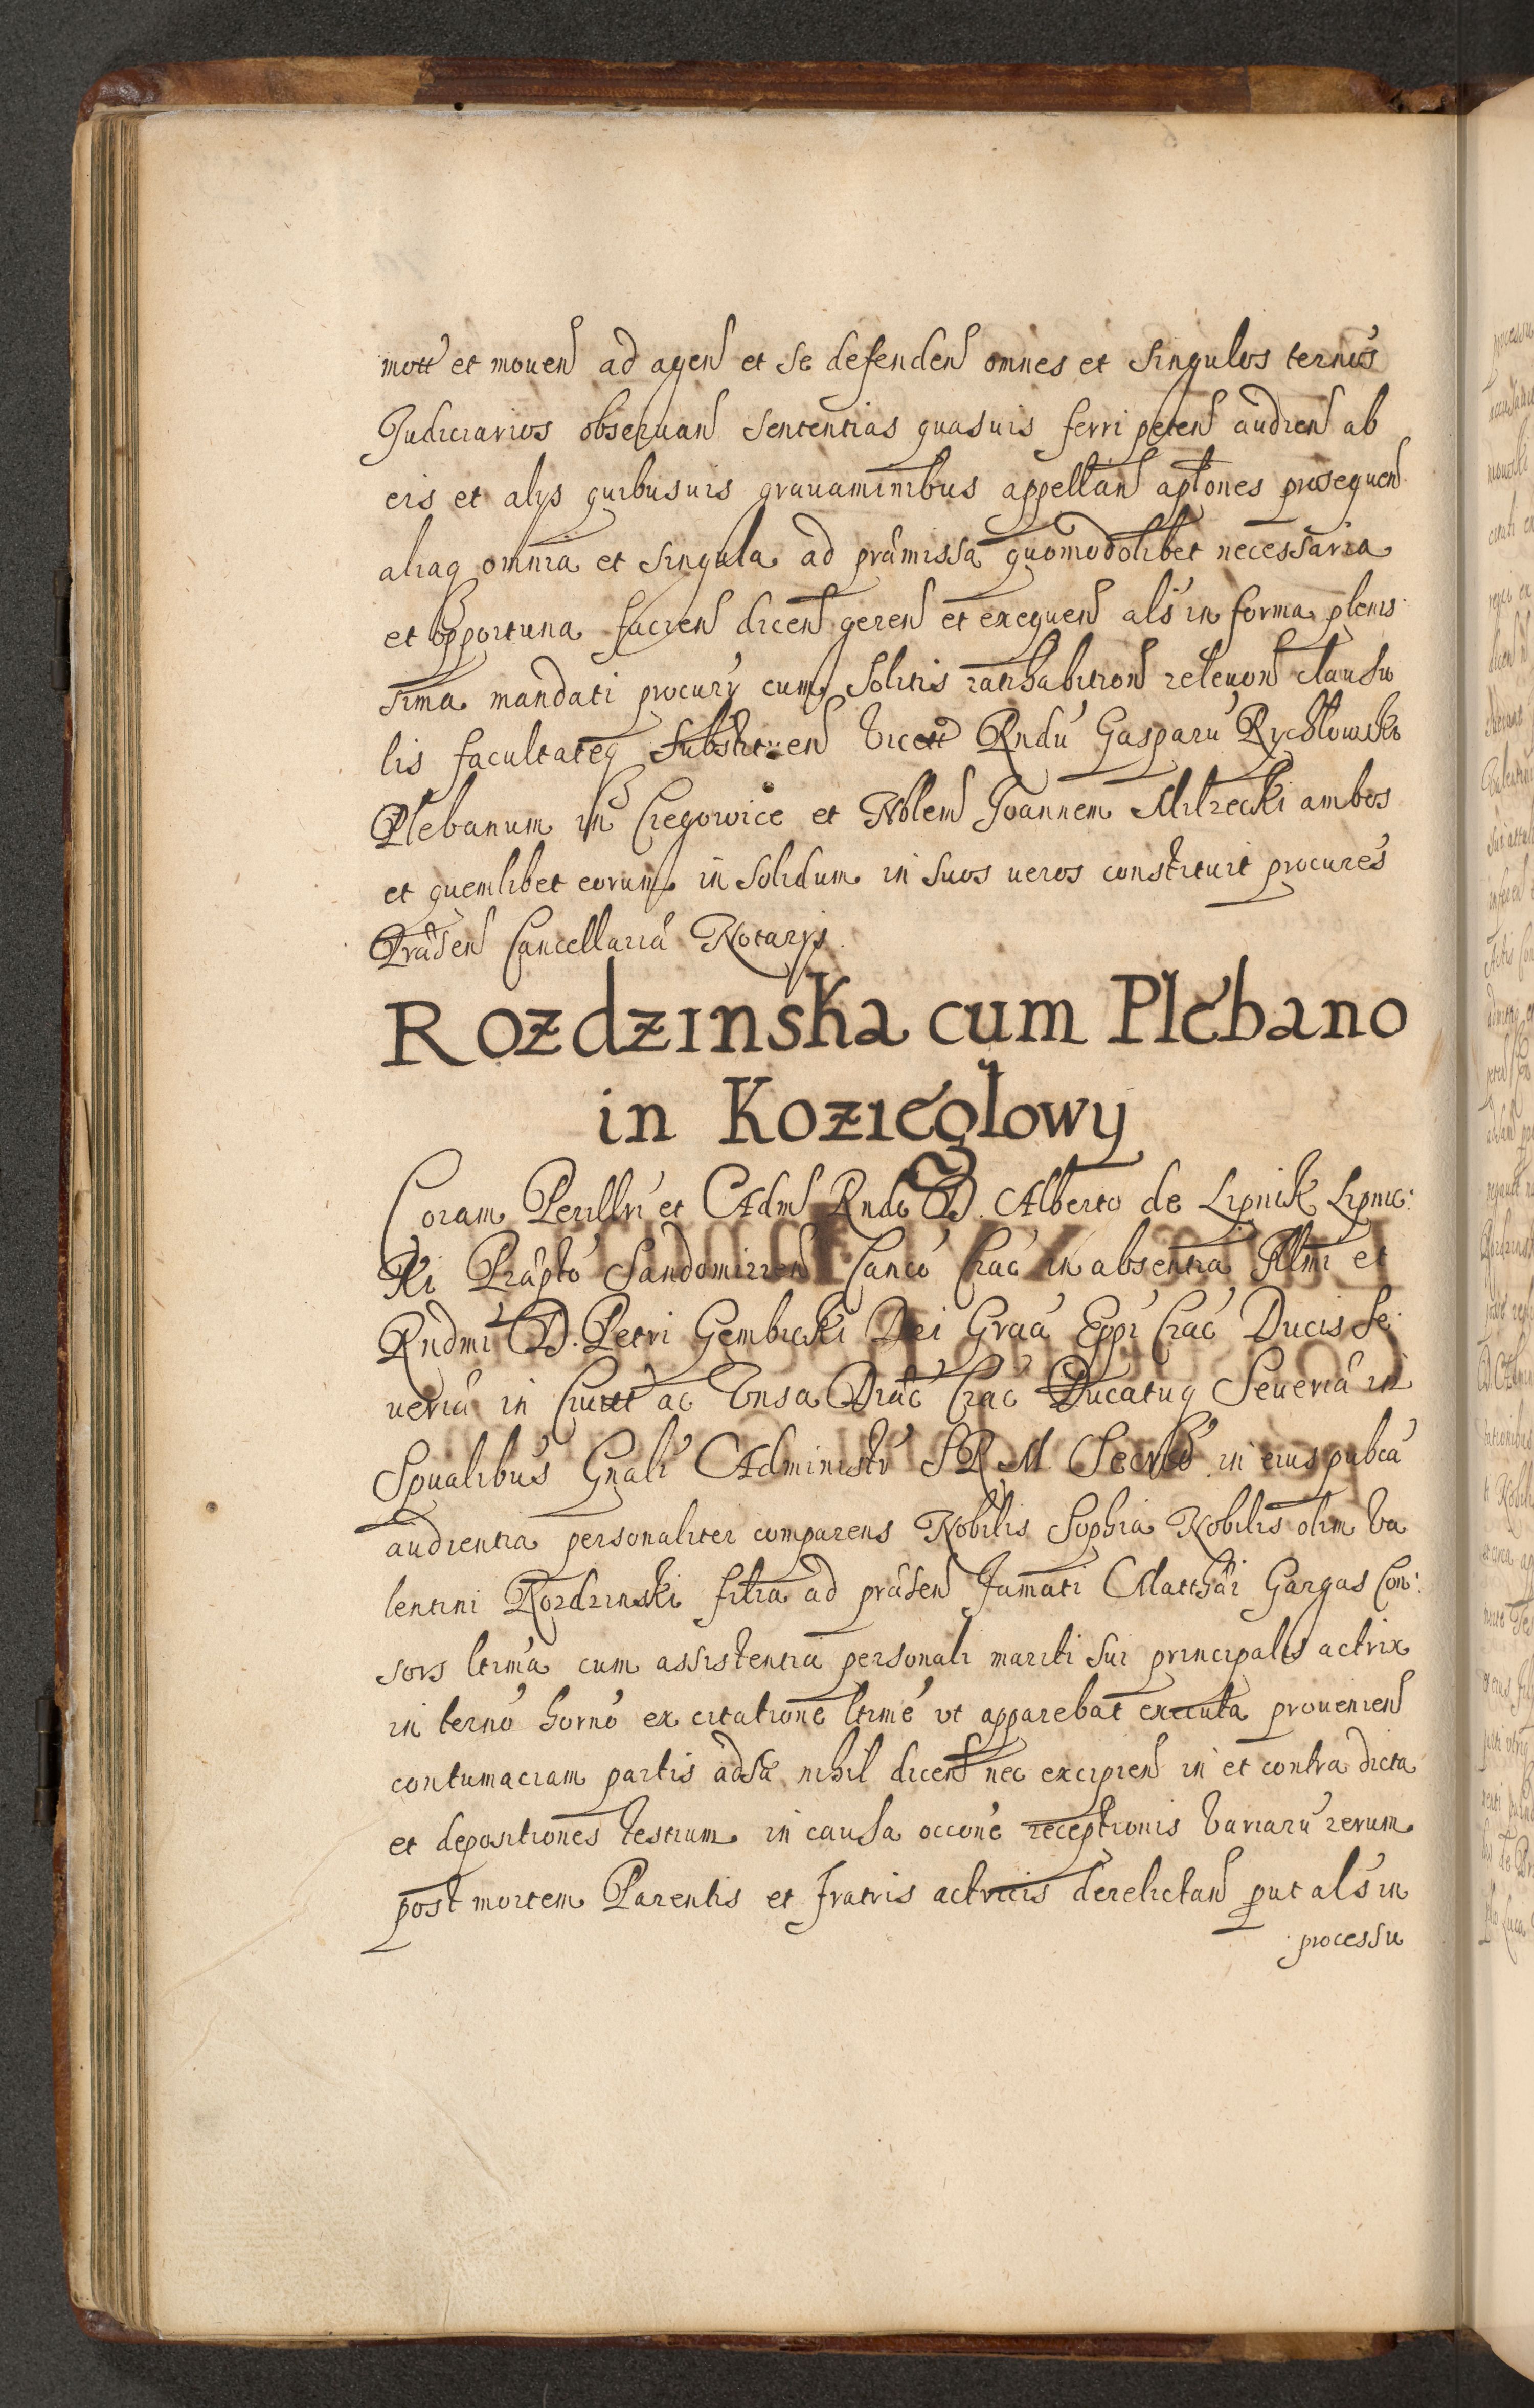 mott et mouen ad agen et se defenden omnes et singulos ternos
Judiciarios obseruan sententias quasuis ferri peten audien ab
eis et alys quibusuis grauaminibus appellan aptones prosequen
aliaq omnia et singula ad præmissa quomodolibet necessaria
et opportuna facien dicen geren et exequen als in forma plenis
sima mandati procury cum solitis ratihabition releuon clausu
lis facultateq substituen Vicett Rndu Gasparu Rychlowski
Plebanum in Ciegowice et Noblem Joannem Milzecki ambos
et quemlibet eorum in solidum in suos ueros constituit procures
Præsen Cancellaria Notarys.
Rozdzinska cum Plebano
in Kozieglowy
Coram Perillri et Adm Rndo D. Alberto de Lipnik Lipnic:
Ki Præpto Sandomirien Canco Crac in absentia Illmi et
Rndmi D. Petri Gembicki Dei Graa Eppi Crac Ducis Se
ueriæ in Ciuitt ac Vnsa Diæc Crac Ducatuq Seueriæ in
Spualibus Gnali Administr S R M Secrio in eius pubca
audientia personaliter comparens Nobilis Sophia Nobilis olim Va
lentini Rozdzinski filia ad præsen Famati Matthæi Gargas Con:
sors ltima cum assistentia personali mariti sui principalis actrix
in terno horno ex citatione ltime ut apparebat executa prouenien
contumaciam partis adsæ nihil dicent nec excipien in et contra dicta
et depositiones testium in causa occone receptionis Variaru rerum
post mortem Parentis et fratris actricis derelictan put als in
processu